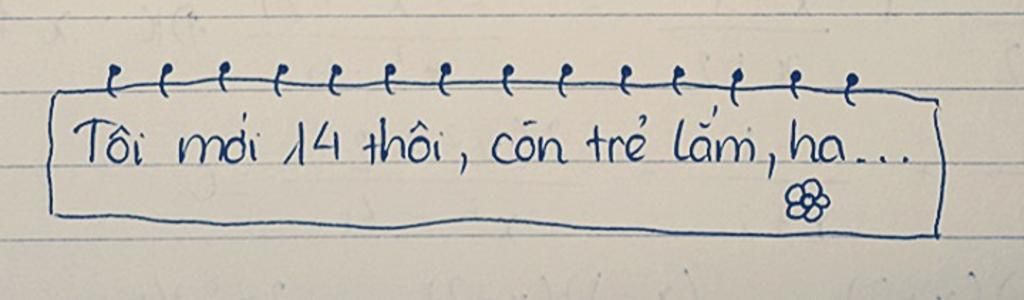 Tôi mới 14 thôi, còn trẻ lắm, ha...